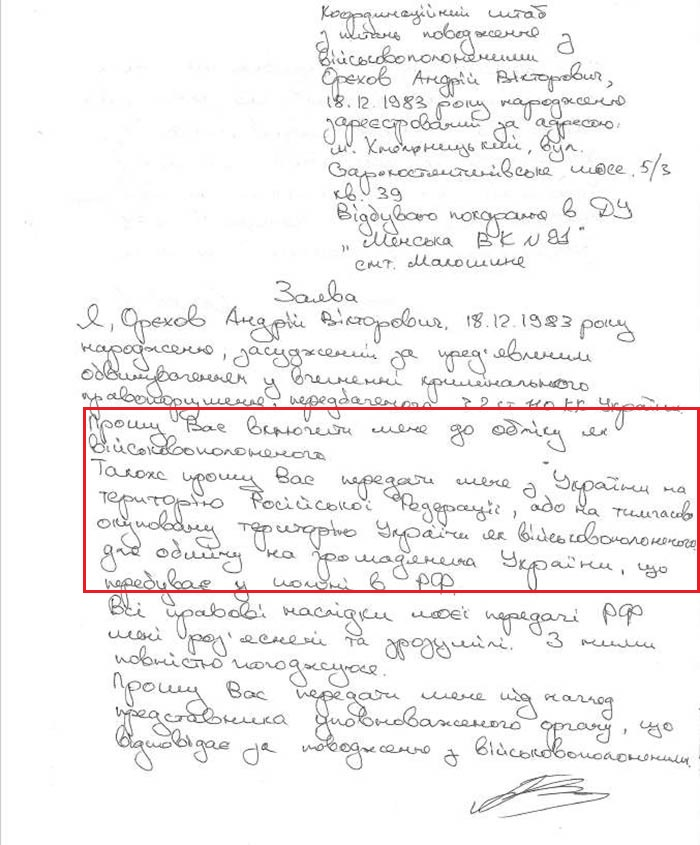 Координаційний штаб
з питань поводження з
військовополоненими
Орєхов Андрій Вікторович,
18.12.1983 року народження
зареєстрований за адресою:
м. Хмельницький, вул.
Старокостянтинівське шосе, 5/3
кв. 39
Відбуваю покарання в ДУ
„Менська ВК №91"
смт. Макошине
Заява
Я, Орєхов Андрій Вікторович, 18.12.1983 року
народженню, засуджений за пред'явленим
обвинуваченнем у вчиненні кримінального
правопорушення, передбаченого ст. КК України
Прошу Вас включити мене до обміну як
військовополоненого
Також прошу Вас передати мене з України на
територію Російської Федерації, або на тимчасово
окуповану територію України як військовополоненого
для обміну на громадянина України, що
перебуває у полоні в РФ
Всі правові наслідки моєї передачі РФ
мені роз'яснені та зрозумілі. З ними
повністю погоджуюсь.
Прошу Вас передати мене під нагляд
представника уповноваженого органу, що
відповідає за поводженню з військовополоненими.